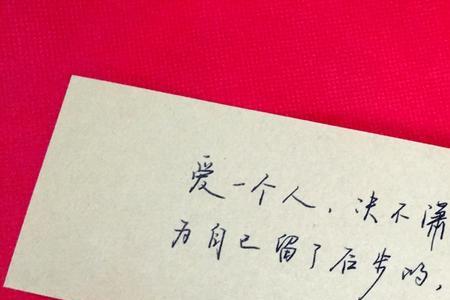 爱一个人，决不潇
为自己留了后步的，